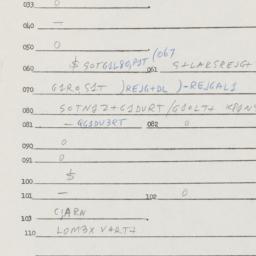 033 0
040 —
050 0
060 $ SOTG1L8O,PJT /067 061 S+LARSREJG+
070 G1RO,S1T )REJG+DL )-REJGAL1
080 SOTN1Z+G1DURT/GIOLT+
081 -GG1DU3RT 082 0
090 0
091 0
100 $
101 — 102 0
103 C)ARN
110 LOM3X VART+